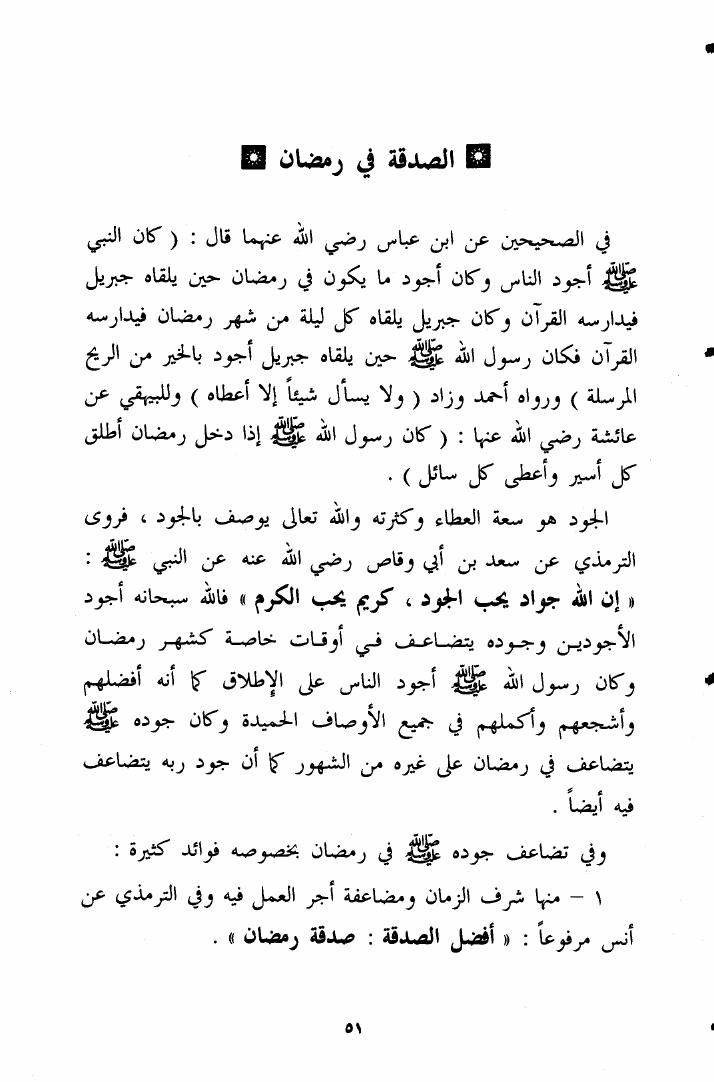 الصدقة في رمضان
في الصحيحين عن ابن عباس رضي الله عنهما قال : ( كان النبي
ﷺ أجود الناس وكان أجود ما يكون في رمضان حين يلقاه جبريل
فيدارسه القرآن وكان جبريل يلقاه كل ليلة من شهر رمضان فيدارسه
القرآن فكان رسول الله ﷺ حين يلقاه جبريل أجود بالخير من الريح
المرسلة ) ورواه أحمد وزاد ( ولا يسأل شيئاً إلا أعطاه ) وللبيهقي عن
عائشة رضي الله عنها : ( كان رسول الله ﷺ إذا دخل رمضان أطلق
كل أسير وأعطى كل سائل ) .
الجود هو سعة العطاء وكثرته والله تعالى يوصف بالجود ، فروى
الترمذي عن سعد بن أبي وقاص رضي الله عنه عن النبي ﷺ :
« إن الله جواد يحب الجود ، كريم يحب الكرم » فالله سبحانه أجود
الأجودين وجوده يتضاعف في أوقات خاصة كشهر رمضان
وكان رسول الله ﷺ أجود الناس على الإطلاق كما أنه أفضلهم
وأشجعهم وأكملهم في جميع الأوصاف الحميدة وكان جوده ﷺ
يتضاعف في رمضان على غيره من الشهور كما أن جود ربه يتضاعف
فيه أيضاً .
وفي تضاعف جوده ﷺ في رمضان بخصوصه فوائد كثيرة :
١ – منها شرف الزمان ومضاعفة أجر العمل فيه وفي الترمذي عن
أنس مرفوعاً : « أفضل الصدقة : صدقة رمضان » .
٥١